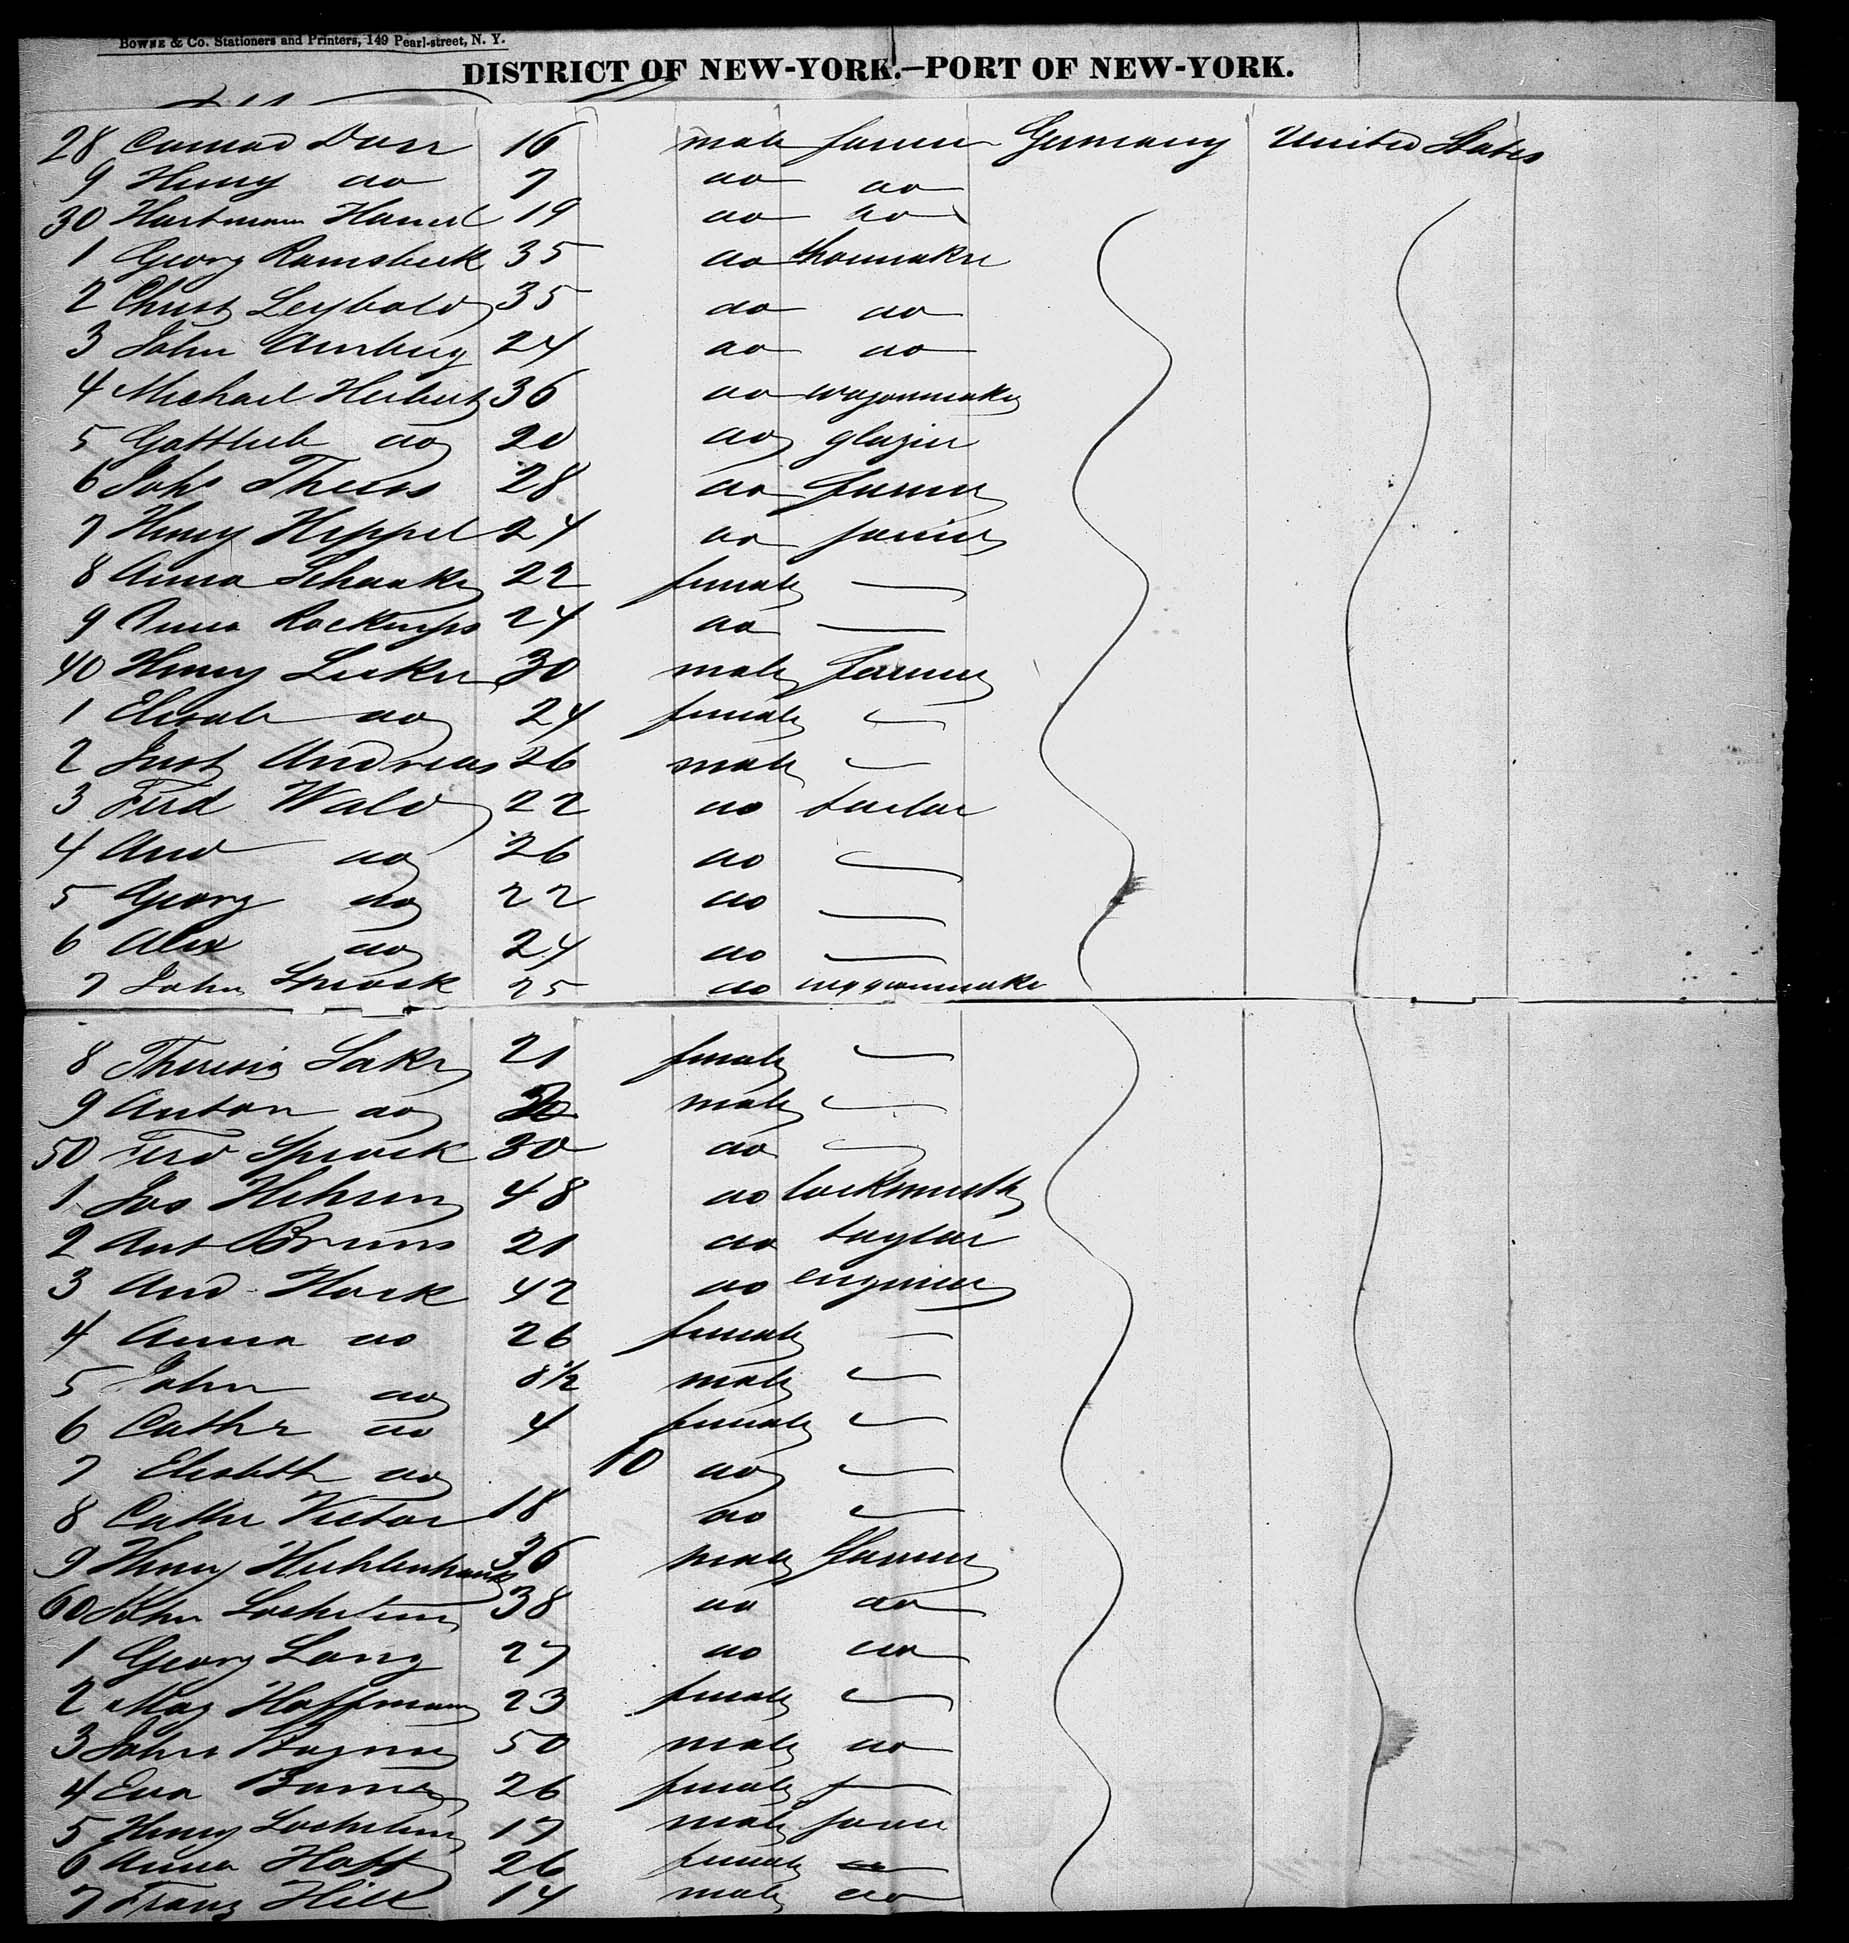 BOWNE & Co. Stationers and Printers, 149 Pearl-street, N. Y.
DISTRICT OF NEW-YORK.—PORT OF NEW-YORK.
28 Conrad Dorr 16 male farmer Germany United States
9 Henry do 7 do do
30 Hartmann 19 do do
1 Georg Ramsbeck 35 do shoemaker
2 Christ Leybold 35 do do
3 John Amberg 24 do do
4 Michael Herbert 36 do wagonmaker
5 Gottlieb do 20 do glazier
6 Johs Theiss 28 do farmer
7 Henry Heppel 24 do joiner
8 Anna Schaake 22 female —
9 Anna 24 do —
40 Henry Luker 30 male farmer
1 Elisab do 24 female —
2 Just Andreas 26 male —
3 Ferd Wald 22 do tailor
4 And do 26 do —
5 Georg do 22 do —
6 Alex do 24 do —
7 John Sprock 25 do waggonmaker
8 Theresia Lake 21 female —
9 Anton do male —
50 Ferd Sprock 30 do —
1 Jos 48 do locksmith
2 Ant Bruns 21 do taylor
3 And Hock 42 do engineer
4 Anna do 26 female —
5 John do 8½ male —
6 Cathr do 4 female —
7 Elisabeth do 10 do —
8 Cathr Victor 18 do —
9 Henry 36 male farmer
60 John 38 do do
1 Georg Lang 27 do do
2 Mag Hoffmann 23 female —
3 John Wagner 50 male do
4 Eva 26 female —
5 Henry 17 male farmer
6 Anna Hoff 26 female
7 Franz Hill 14 male do